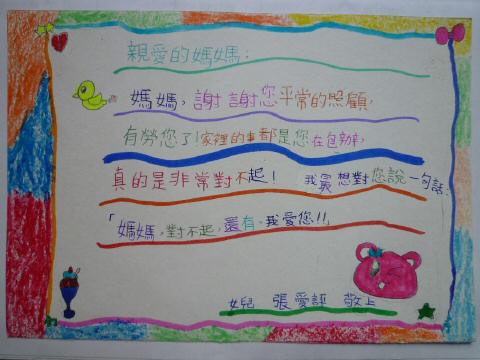 親愛的媽媽：
媽媽，謝謝您平常的照顧，
有勞您了！家裡的事都是您在包辦，
真的是非常對不起！我最想對您說一句話：
「媽媽，對不起，還有，我愛您!!」
女兒 張愛評 敬上